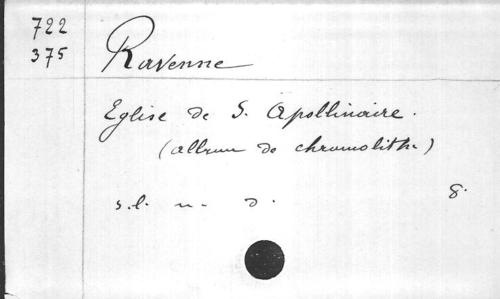 722
375
Ravenne
Eglise de S. Apollinaire.
(album de chromolith.)
s.l. n. d. 8°